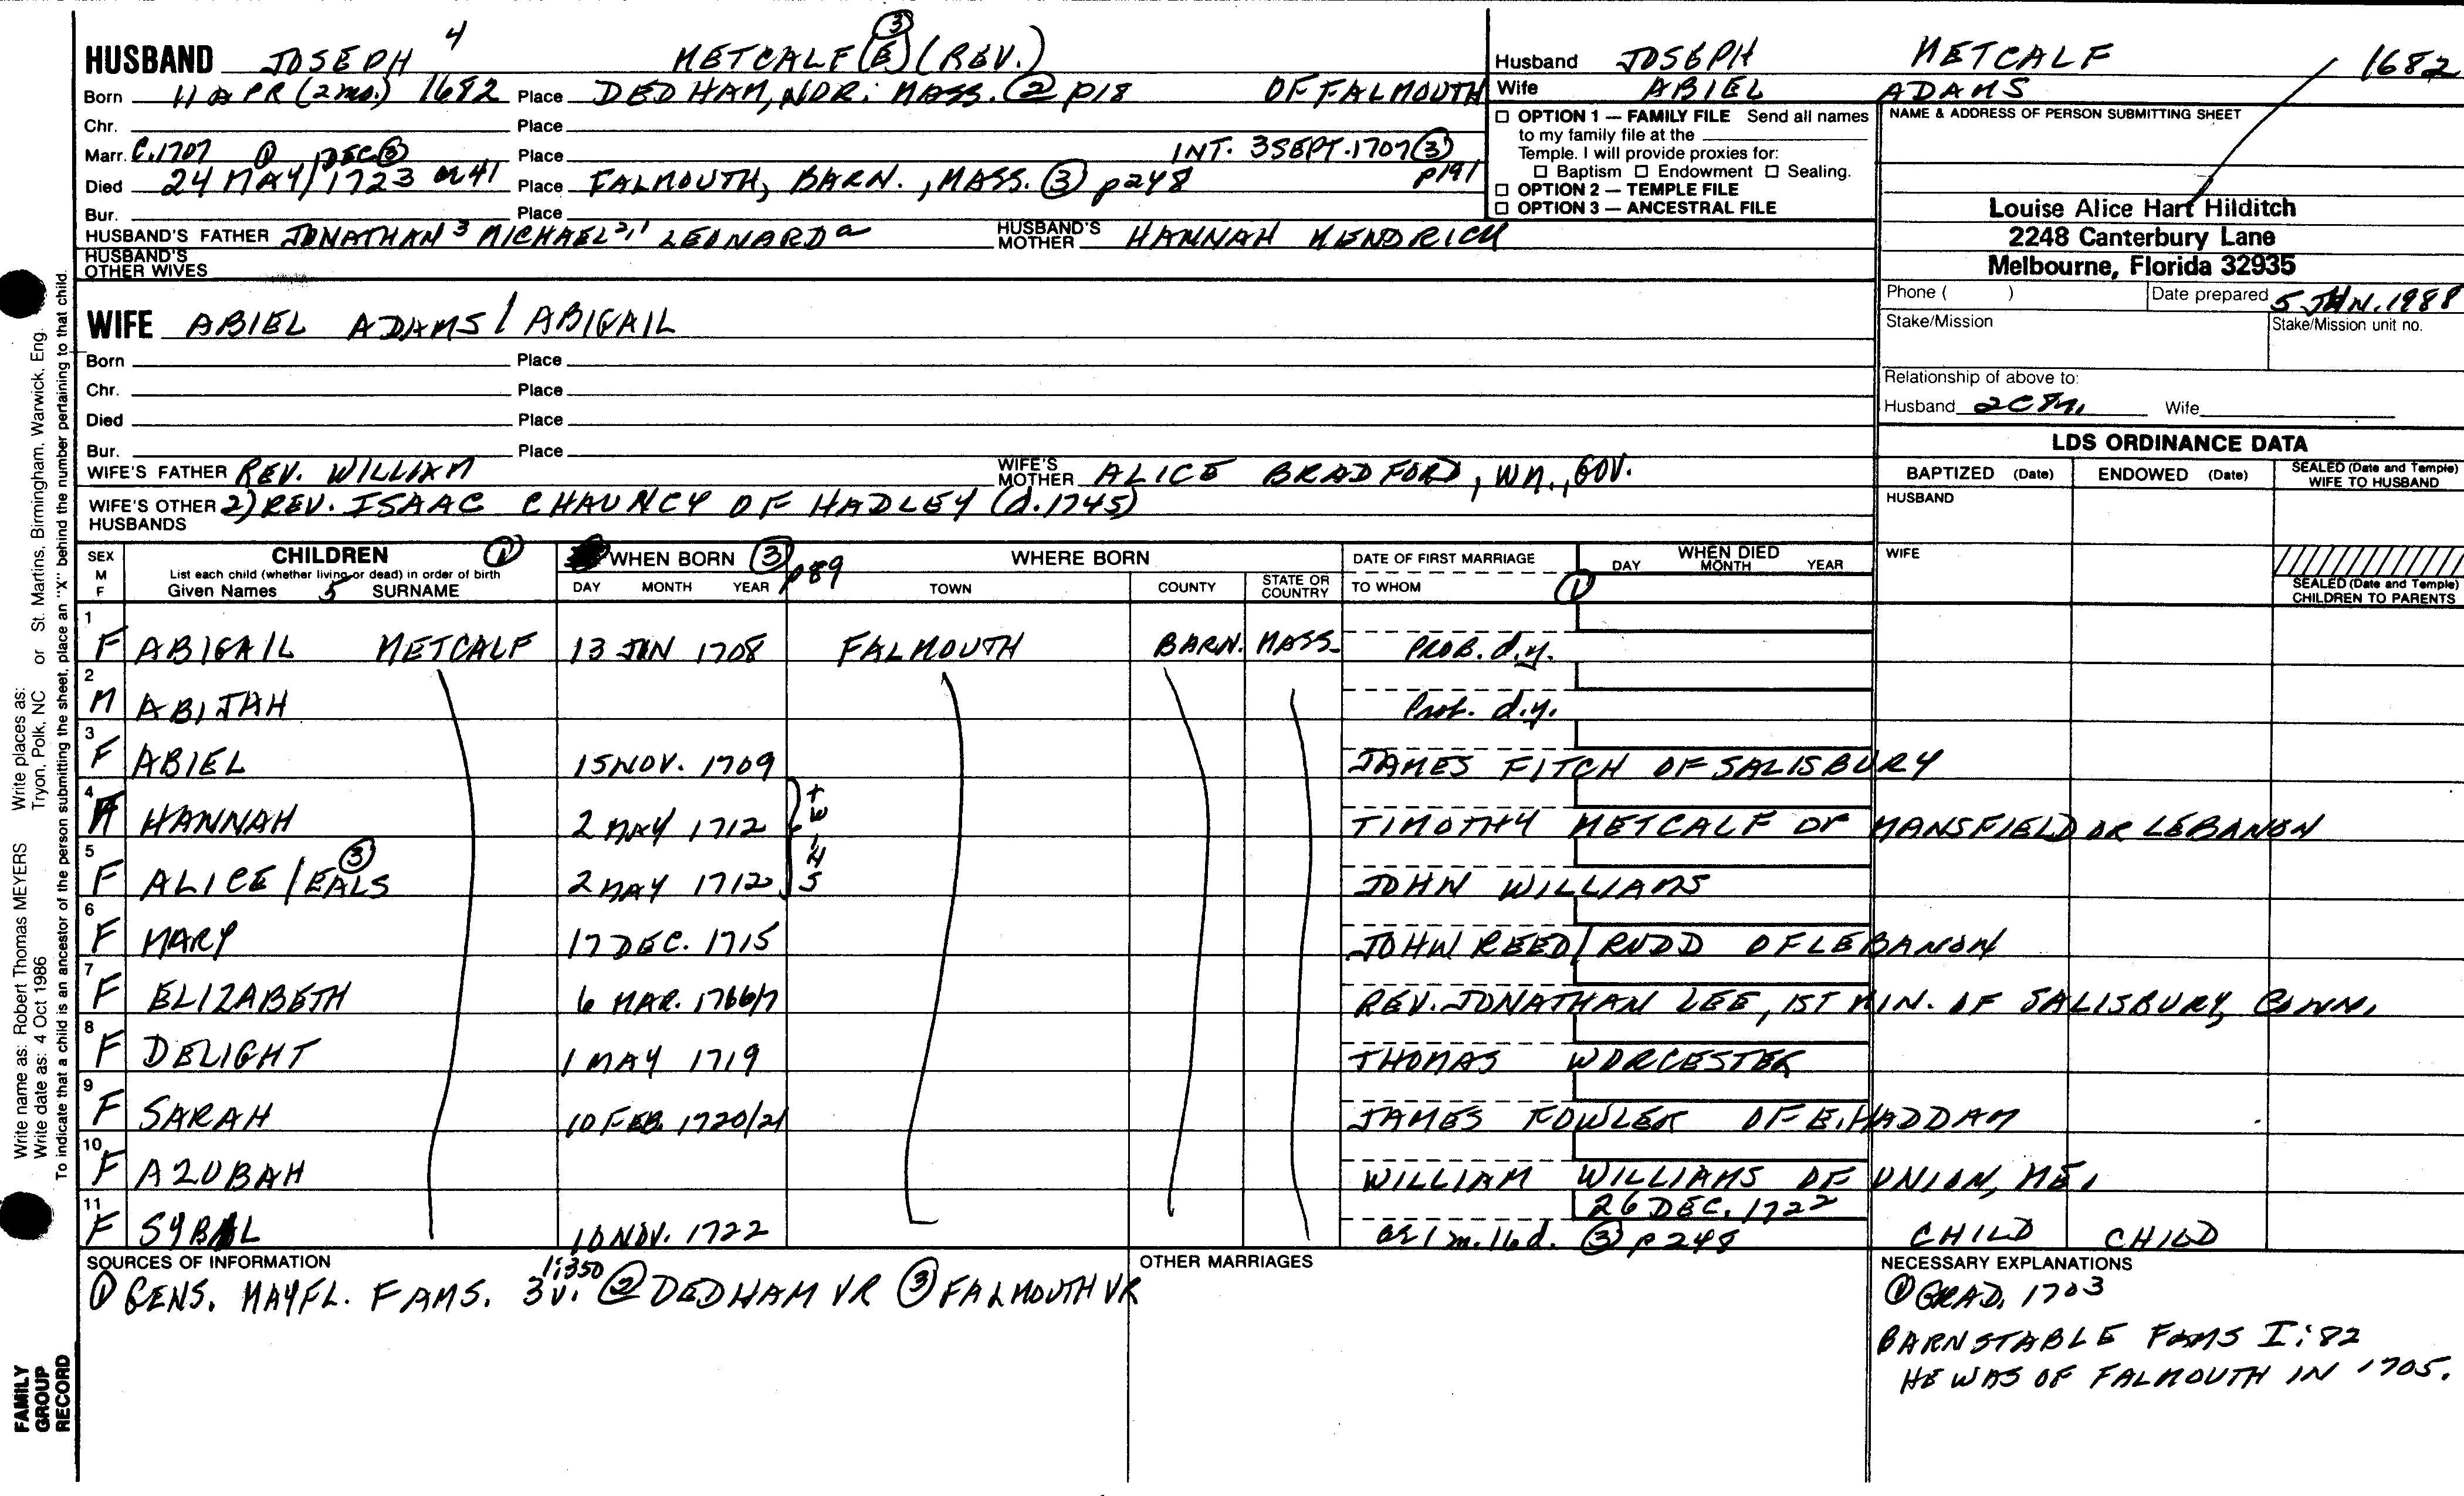 HUSBAND JOSEPH 4 METCALF(E) ③ (REV.)
Born 11 APR (2 mo.) 1682 Place DEDHAM, NOR. MASS. ② p18 OF FALMOUTH
Chr. Place
Marr. C.1707 ① DEC ③ Place INT. 3 SEPT. 1707 ③ p191
Died 24 MAY/1723 or 41 Place FALMOUTH, BARN., MASS. ③ p248
Bur. Place
HUSBAND'S FATHER JONATHAN 3 MICHAEL 2,1 LEONARD a HUSBAND'S MOTHER HANNAH KENDRICK
HUSBAND'S OTHER WIVES
WIFE ABIEL ADAMS / ABIGAIL
Born Place
Chr. Place
Died Place
Bur. Place
WIFE'S FATHER REV. WILLIAM WIFE'S MOTHER ALICE BRADFORD, WM., GOV.
WIFE'S OTHER HUSBANDS 2) REV. ISAAC CHAUNCY OF HADLEY (d. 1745)
Husband JOSEPH METCALF 1682
Wife ABIEL ADAMS
☐ OPTION 1 — FAMILY FILE Send all names
to my family file at the
Temple. I will provide proxies for:
☐ Baptism ☐ Endowment ☐ Sealing.
☐ OPTION 2 — TEMPLE FILE
☐ OPTION 3 — ANCESTRAL FILE
NAME & ADDRESS OF PERSON SUBMITTING SHEET
Louise Alice Hart Hilditch
2248 Canterbury Lane
Melbourne, Florida 32935
Phone ( ) Date prepared 5 JAN. 1988
Stake/Mission Stake/Mission unit no.
Relationship of above to:
Husband Wife
LDS ORDINANCE DATA
BAPTIZED (Date) ENDOWED (Date) SEALED (Date and Temple) WIFE TO HUSBAND
HUSBAND
WIFE
SEALED (Date and Temple) CHILDREN TO PARENTS
SEX M F CHILDREN ① WHEN BORN ③ p89 WHERE BORN DATE OF FIRST MARRIAGE WHEN DIED
List each child (whether living or dead) in order of birth
Given Names 5 SURNAME DAY MONTH YEAR TOWN COUNTY STATE OR COUNTRY TO WHOM ① DAY MONTH YEAR
1 F ABIGAIL METCALF 13 JUN 1708 FALMOUTH BARN. MASS. PROB. d.y.
2 M ABIJAH Prob. d.y.
3 F ABIEL 15 NOV. 1709 JAMES FITCH OF SALISBURY
4 HANNAH 2 MAY 1712 TWINS TIMOTHY METCALF OF MANSFIELD OR LEBANON
5 F ALICE / EALS ③ 2 MAY 1712 JOHN WILLIAMS
6 F MARY 17 DEC. 1715 JOHN REED/RUDD OF LEBANON
7 F ELIZABETH 6 MAR. 1766/7 REV. JONATHAN LEE, 1ST MIN. OF SALISBURY, CONN.
8 F DELIGHT 1 MAY 1719 THOMAS WORCESTER
9 F SARAH 10 FEB. 1720/21 JAMES FOWLER OF E. HADDAM
10 F AZUBAH WILLIAM WILLIAMS OF UNION, ME.
11 F SYBAL 10 NOV. 1722 26 DEC. 1722
ae 1 m. 16 d. ③ p248 CHILD CHILD
SOURCES OF INFORMATION
① GENS. MAYFL. FAMS. 3v. 1:350 ② DEDHAM VR ③ FALMOUTH VR
OTHER MARRIAGES
NECESSARY EXPLANATIONS
① GRAD. 1703
BARNSTABLE FAMS I:82
HE WAS OF FALMOUTH IN 1705.
Write name as: Robert Thomas MEYERS Write places as: Tryon, Polk, NC or St. Martins, Birmingham, Warwick, Eng.
Write date as: 4 Oct 1986
To indicate that a child is an ancestor of the person submitting the sheet, place an "X" behind the number pertaining to that child.
FAMILY
GROUP
RECORD